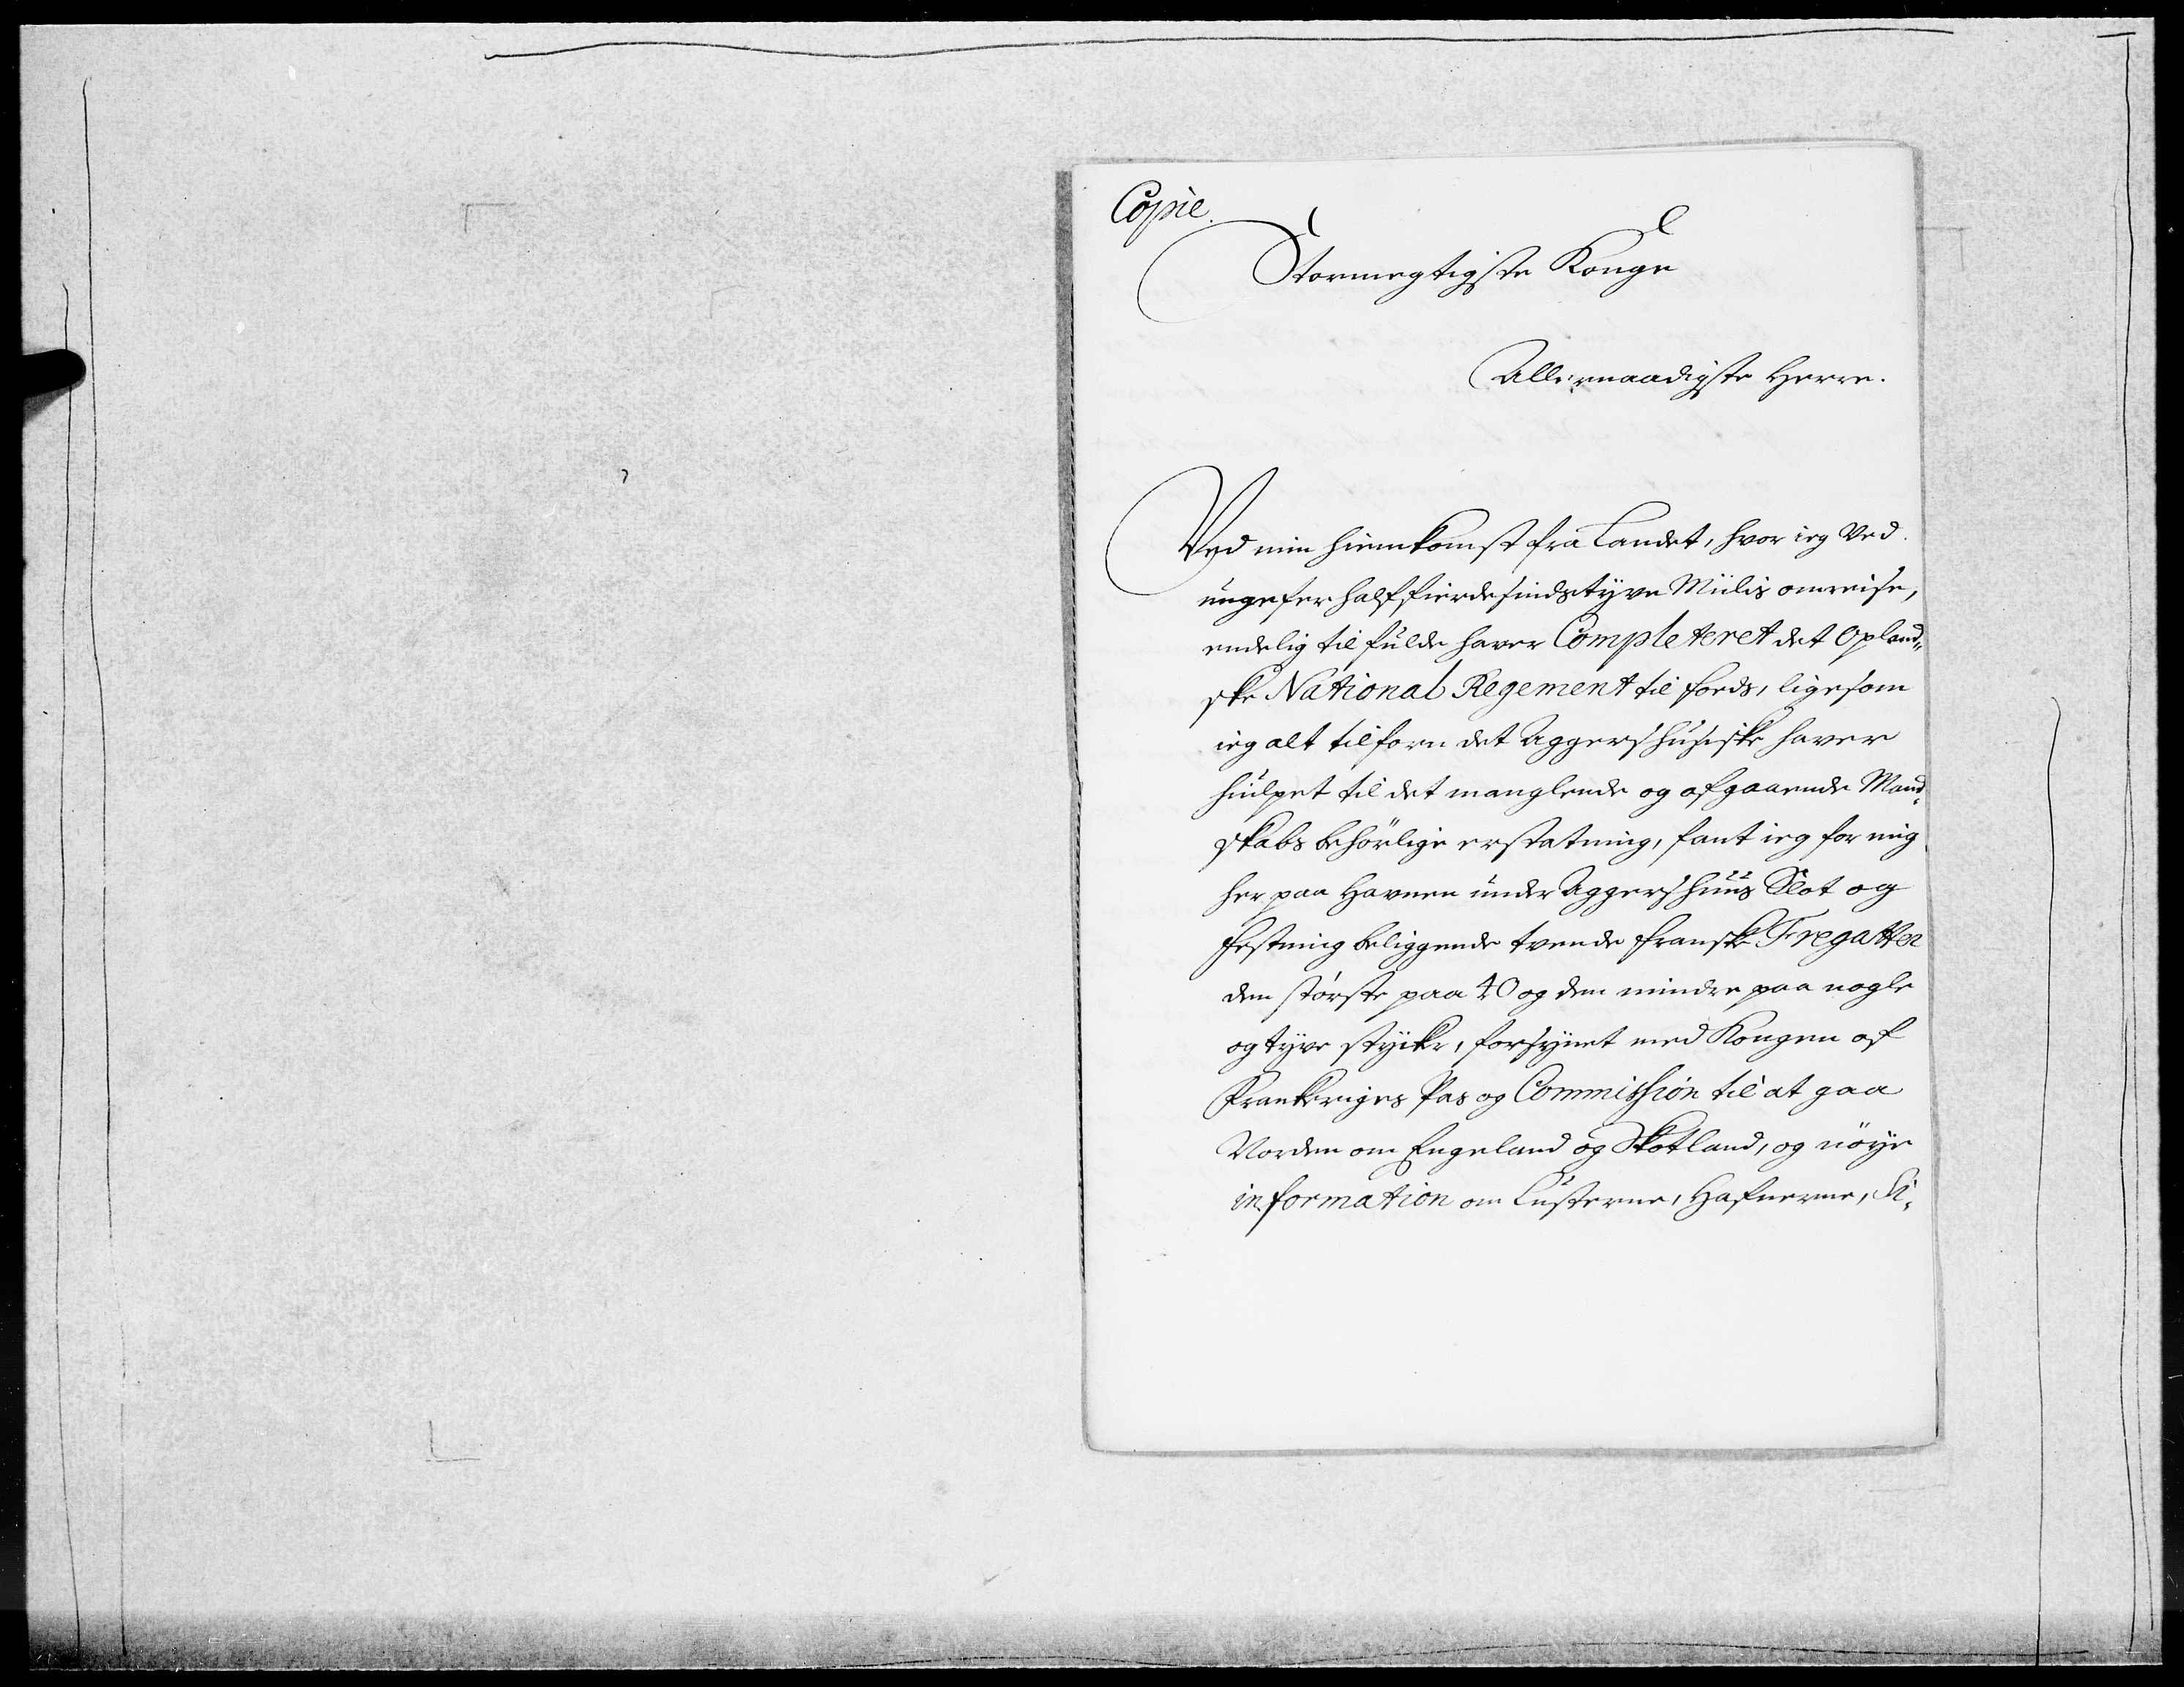 Copie.
Stormegtigste Konge
Allernaadigste Herre.
Ved min hiemkomst fra Landet, hvor ieg Ved
ungefer halffierdesindstyve Miilis omreise,
endelig til fulde haver Completeret det Opland„
ske National Regement til foeds, ligesom
ieg alt tilforn det Aggershusiske haver
hiulpet til det manglende og afgaaende Mand„
skabs behörlige erstatning, fant ieg for mig
her paa Havnen under Aggershuus Slot og
festning beliggende tvende franske Fregatter
den störste paa 40 og den mindre paa nogle
og tyve stycke, forsynet med Kongen af
Frankeriges Pas og Commission til at gaa
Norden om Engeland og Skotland, og nöye
information om Custerne, Hafnerne, Si„